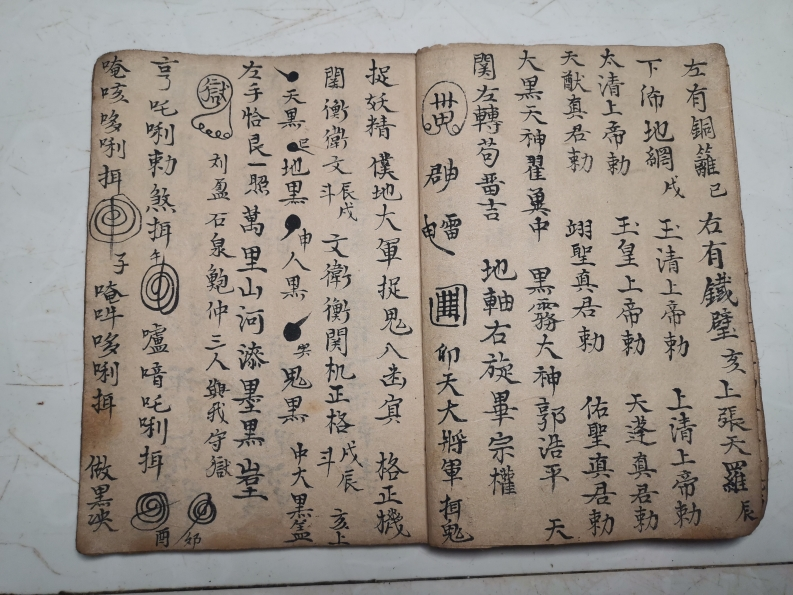 左有銅籬巳右有鐵壁亥上張天羅辰
下佈地網戌玉清上帝勅上清上帝勅
太清上帝勅玉皇上帝勅天蓬真君勅
天猷真君勅翊聖真君勅佑聖真君勅
大黑天神翟巽中黑霧大神郭浩平天
関左轉苟畨吉地軸右旋畢宗權
卯天大將軍揖鬼
捉妖精僕地大軍捉鬼八出宾格正機
関衡衛文斗辰戌文衛衡関机正格斗戌辰亥上
天黑地黑申人黑鬼黑中大黑盖
左手恰艮一照萬里山河漆墨黑
獄刘盈石泉鮑仲三人與我守獄
亨吒唎勅煞揖午嚧喑吒唎揖酉卯
唵咳哆唎揖子唵吽哆唎揖做黑决